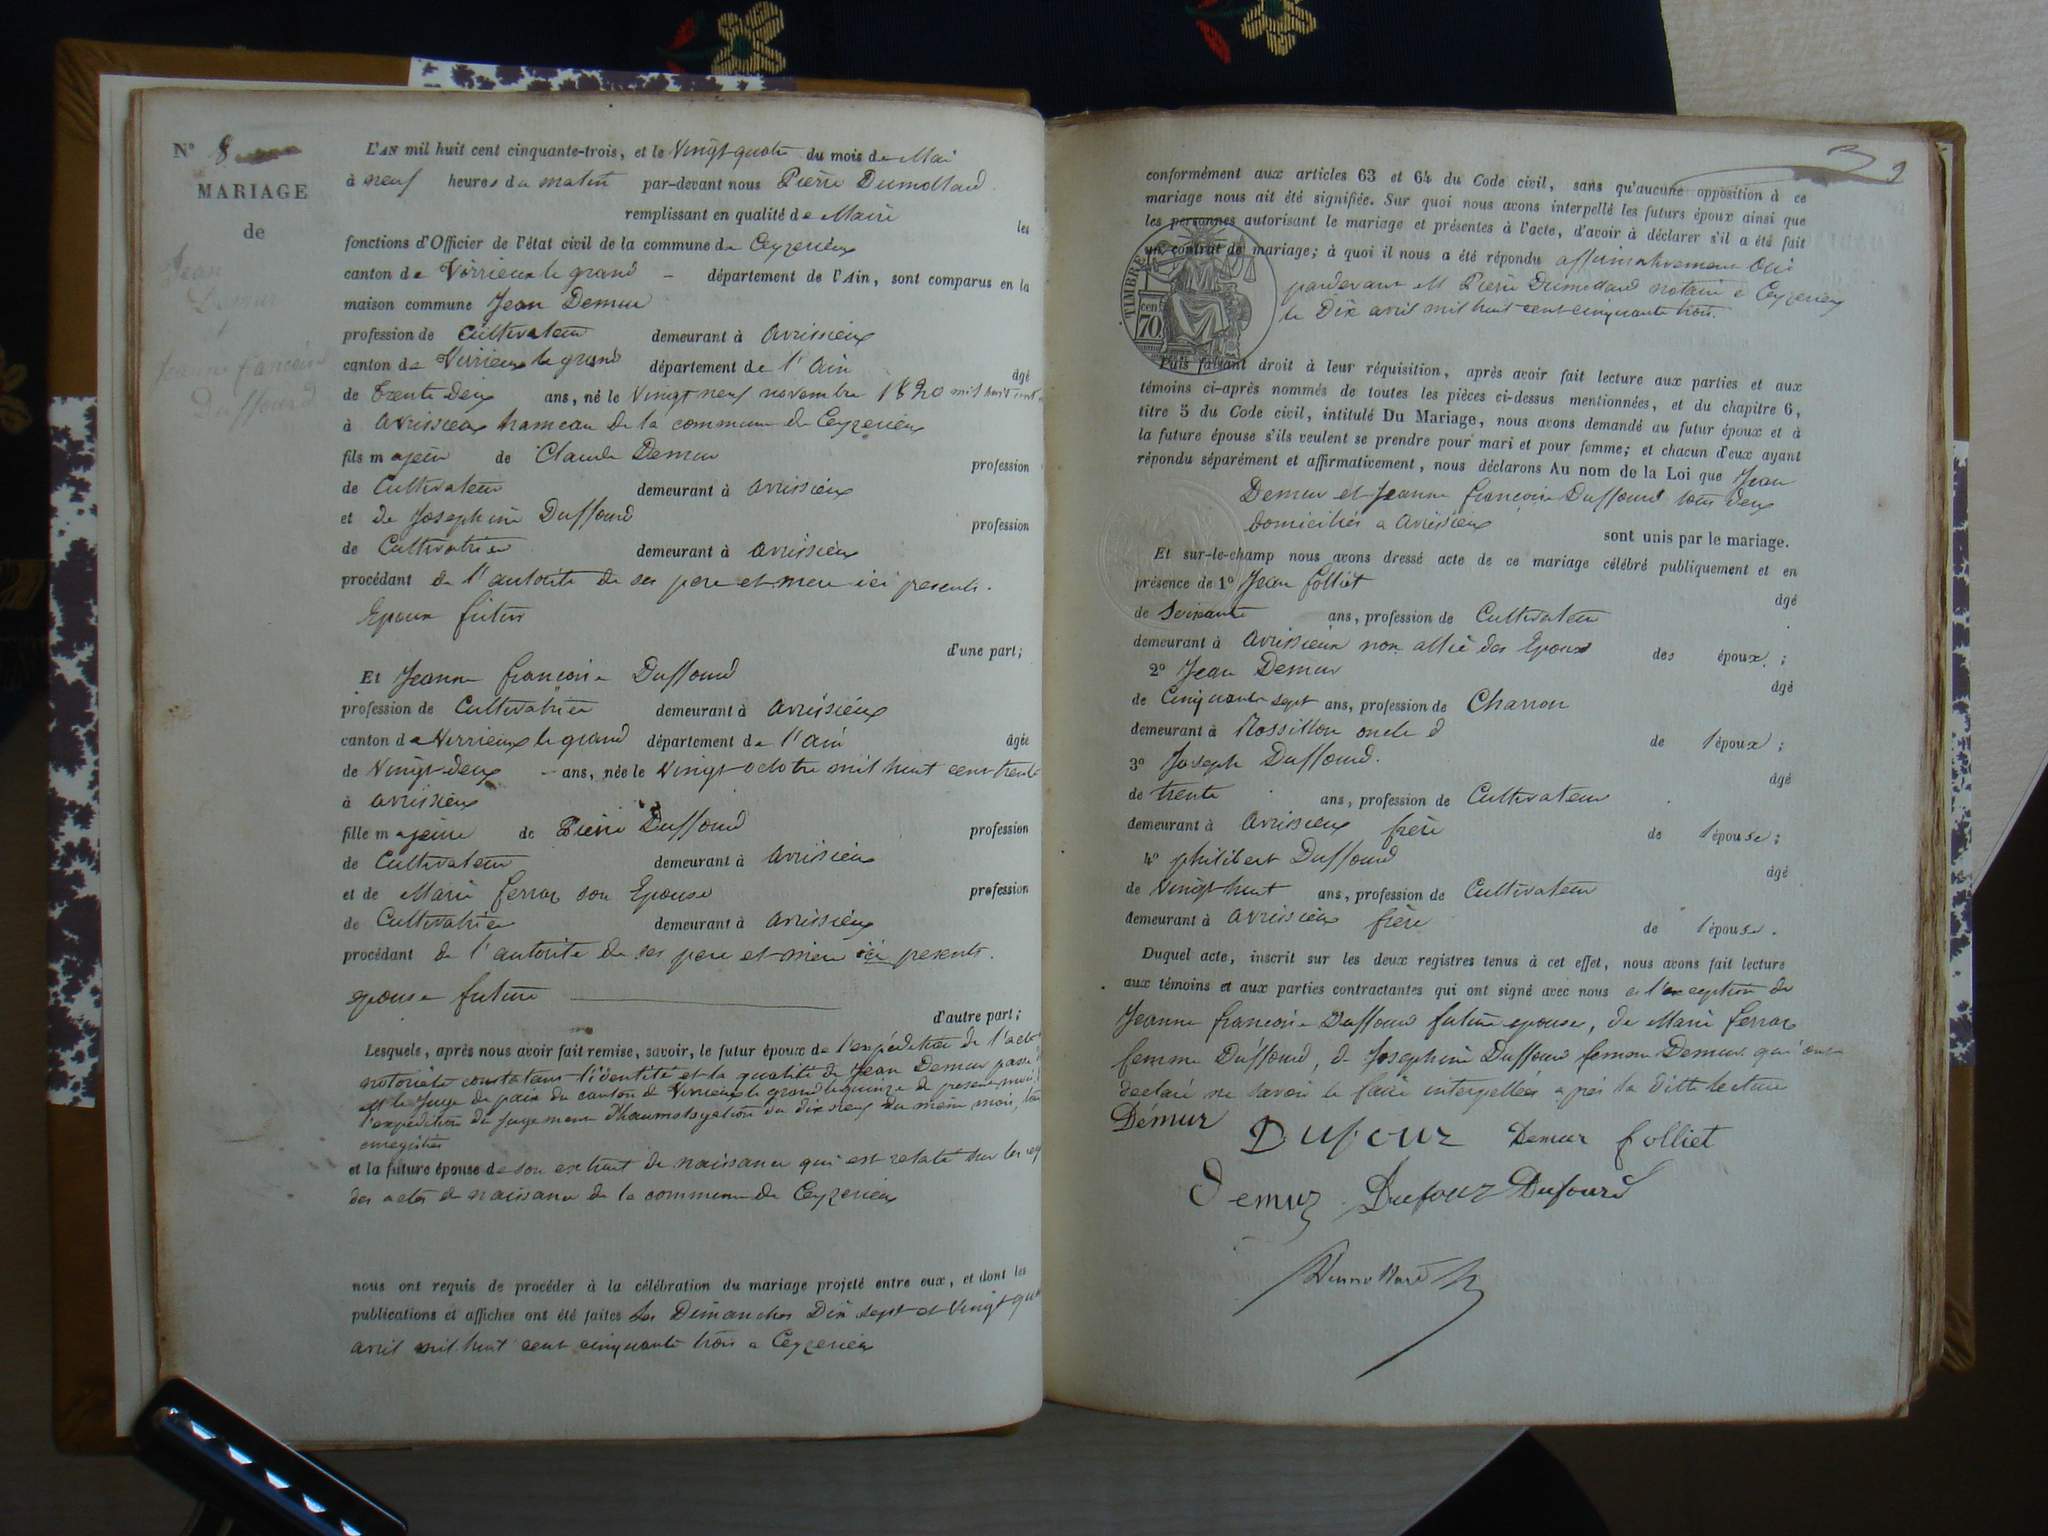 N° 8
MARIAGE
de
Jean
Demur
Jeanne françoise
Duffourd
L'AN mil huit cent cinquante-trois, et le Vingt quatre du mois de Mai
à neuf heures du matin par-devant nous Pierre Dumollard
remplissant en qualité de Maire les
fonctions d'Officier de l'état civil de la commune de Ceyzerieux
canton de Virrieux le grand département de l'Ain, sont comparus en la
maison commune Jean Demur
profession de Cultivateur demeurant à Avrissieux
canton de Virrieux le grand département de l'Ain âgé
de Trente Deux ans, né le Vingt neuf novembre 1820 mil huit cent
à Avrissieux hameau de la commune de Ceyzerieux
fils majeur de Claude Demur profession
de Cultivateur demeurant à avrissieux
et de Josephine Duffourd profession
de Cultivatrice demeurant à avrissieux
procédant de l'autorité de ses pere et mere ici presents.
Epoux futur
d'une part;
Et Jeanne françoise Duffourd
profession de Cultivatrice demeurant à avrissieux
canton de Virrieux le grand département de l'ain âgée
de Vingt deux ans, née le Vingt octobre mil huit cent trente
à avrissieux
fille majeure de Pierre Duffourd profession
de Cultivateur demeurant à avrissieux
et de Marie ferraz son Epouse profession
de Cultivatrice demeurant à avrissieux
procédant de l'autorité de ses pere et mere ici presents.
epouse future
d'autre part;
Lesquels, après nous avoir fait remise, savoir, le futur époux de l'expédition de l'acte
notoriété constatant l'identité et la qualité de Jean Demur passé
le Juge de paix du canton de Virrieux le grand le quinze de present mois,
l'expédition du jugement d'haumologation du dix neuf du meme mois,
enregistrés
et la future épouse de son extrait de naissance qui est relaté sur les reg
des actes de naissance de la commune de Ceyzerieux
nous ont requis de procéder à la célébration du mariage projeté entre eux, et dont les
publications et affiches ont été faites les Dimanches Dix sept et Vingt qua
avril mil huit cent cinquante trois a Ceyzerieux
9
conformément aux articles 63 et 64 du Code civil, sans qu'aucune opposition à ce
mariage nous ait été signifiée. Sur quoi nous avons interpellé les futurs époux ainsi que
les personnes autorisant le mariage et présentes à l'acte, d'avoir à déclarer s'il a été fait
un contrat de mariage; à quoi il nous a été répondu affirmativement Oui
pardevant M Pierre Dumollard notaire a Ceyzerieux
le Dix avril mil huit cent cinquante trois.
TIMBRE
cen
70
Puis faisant droit à leur réquisition, après avoir fait lecture aux parties et aux
témoins ci-après nommés de toutes les pièces ci-dessus mentionnées, et du chapitre 6,
titre 5 du Code civil, intitulé Du Mariage, nous avons demandé au futur époux et à
la future épouse s'ils veulent se prendre pour mari et pour femme; et chacun d'eux ayant
répondu séparément et affirmativement, nous déclarons Au nom de la Loi que Jean
Demur et Jeanne françoise Duffourd tous deux
domiciliés a avrissieux
sont unis par le mariage.
Et sur-le-champ nous avons dressé acte de ce mariage célébré publiquement et en
présence de 1° Jean folliet âgé
de Soixante ans, profession de Cultivateur
demeurant à Avrissieux non allié des Epoux des époux;
2° Jean Demur âgé
de Cinquante sept ans, profession de Charron
demeurant à Rossillon oncle d de l'époux;
3° Joseph Duffourd. âgé
de trente ans, profession de Cultivateur
demeurant à Avrissieux frère de l'épouse;
4° philibert Duffourd âgé
de Vingt huit ans, profession de Cultivateur
demeurant à avrissieux frère de l'épouse.
Duquel acte, inscrit sur les deux registres tenus à cet effet, nous avons fait lecture
aux témoins et aux parties contractantes qui ont signé avec nous a l'exception de
Jeanne françoise Duffourd future epouse, de Marie ferraz
femme Duffourd, de Josephine Duffourd femme Demur qui ont
déclaré ne savoir le faire interpellés apres la ditte lecture
Démur Dufour Demur folliet
Demur Dufour Dufourd
Dumollard